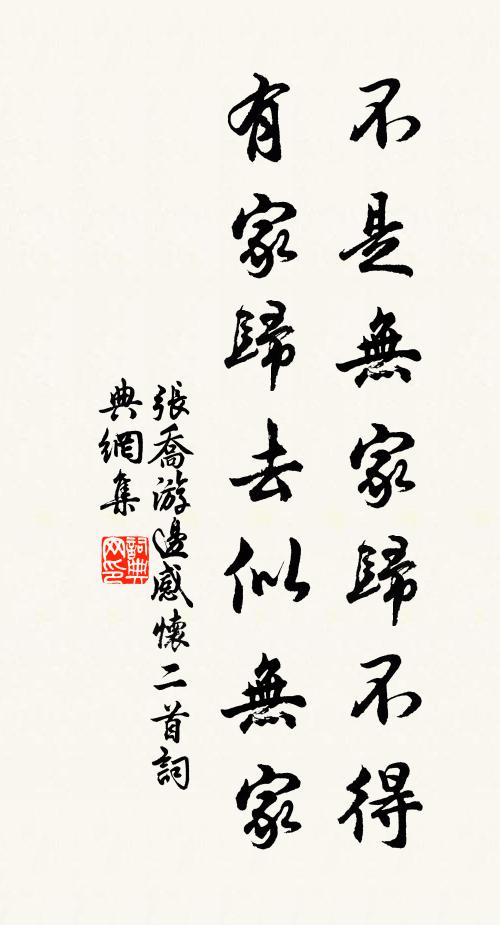 不是無家歸不得
有家歸去似無家
張喬游邊感懷二首詞
典網集
詞典
网印